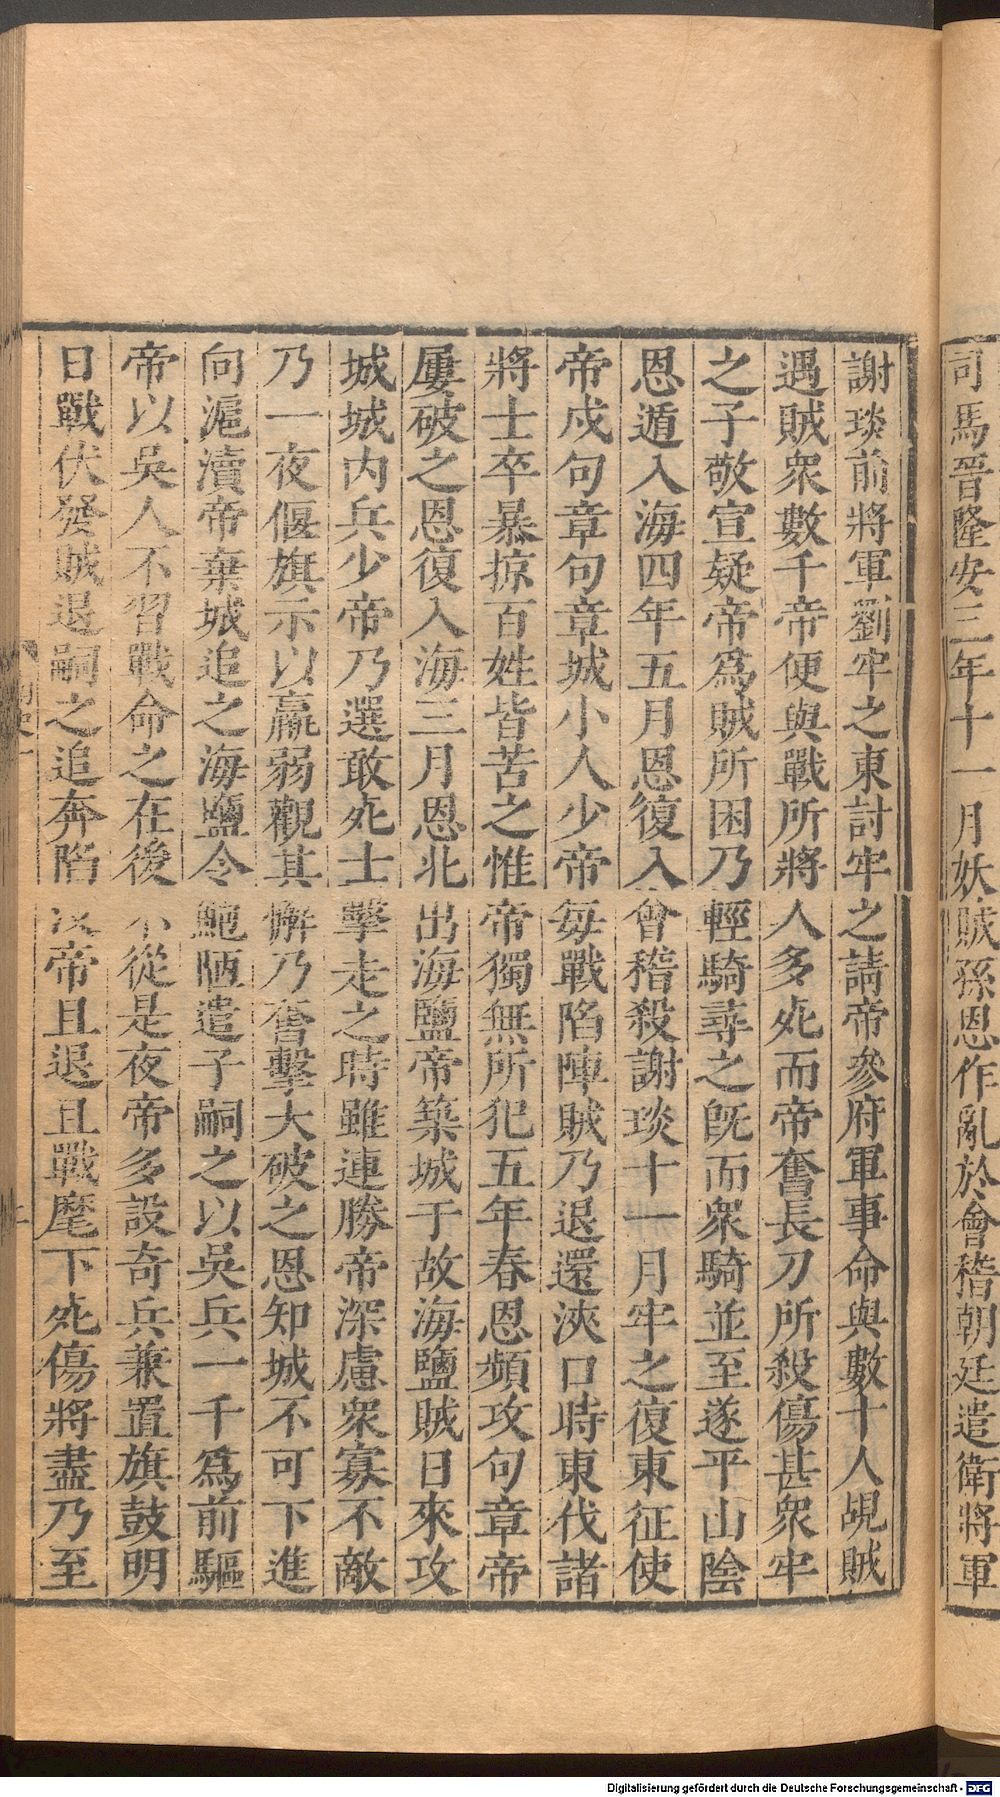 司馬晉隆安三年十一月妖賊孫恩作亂於會稽朝廷遣衛將軍
謝琰前將軍劉牢之東討牢之請帝參府軍事命與數十人覘賊
遇賊衆數千帝便與戰所將人多死而帝奮長刀所殺傷甚衆牢
之子敬宣疑帝爲賊所困乃輕騎尋之旣而衆騎並至遂平山陰
恩遁入海四年五月恩復入會稽殺謝琰十一月牢之復東征使
帝戍句章句章城小人少帝每戰陷陣賊乃退還浹口時東伐諸
將士卒暴掠百姓皆苦之惟帝獨無所犯五年春恩頻攻句章帝
屢破之恩復入海三月恩北出海鹽帝築城于故海鹽賊日來攻
城城内兵少帝乃選敢死士擊走之時雖連勝帝深慮衆寡不敵
乃一夜偃旗示以羸弱觀其懈乃奮擊大破之恩知城不可下進
向滬瀆帝棄城追之海鹽令鮑陋遣子嗣之以吳兵一千爲前驅
帝以吳人不習戰命之在後不從是夜帝多設奇兵兼置旗鼓明
日戰伏發賊退嗣之追奔陷没帝且退且戰麾下死傷將盡乃至
Digitalisierung gefördert durch die Deutsche Forschungsgemeinschaft - DFG